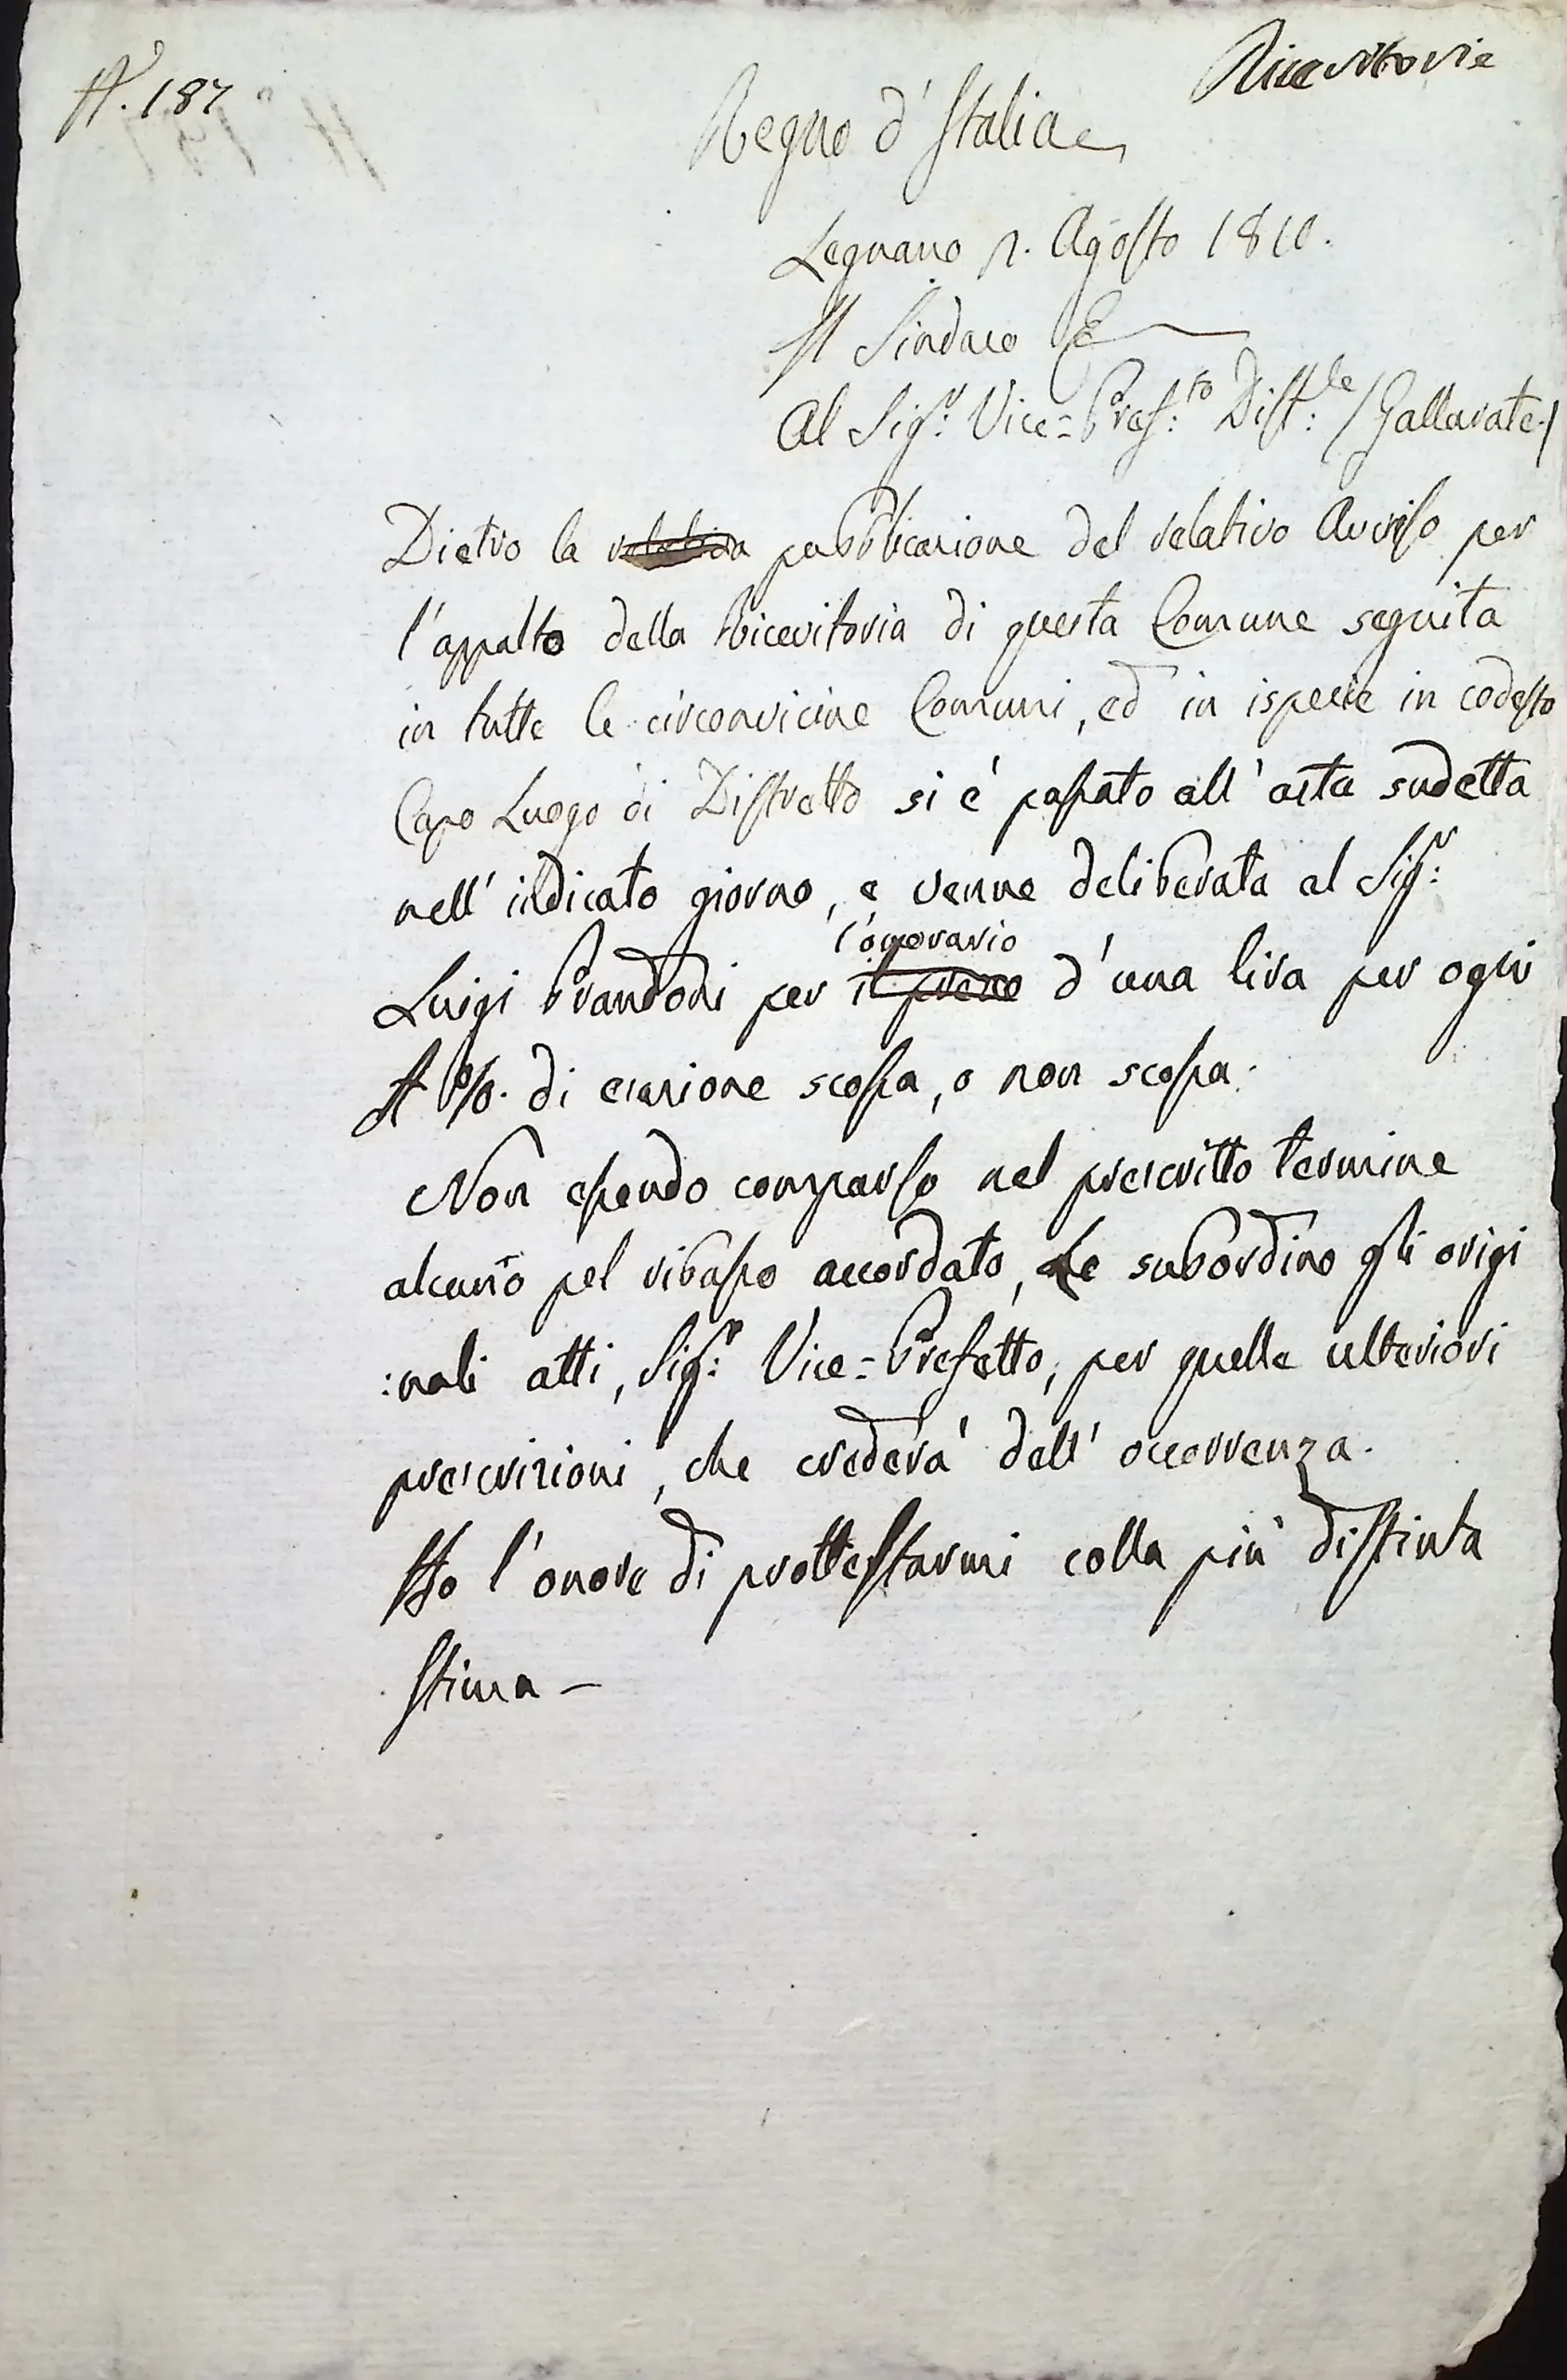 N. 187
Ricevitorie
Regno d'Italia
Legnano 2. Agosto 1810.
Il Sindaco
Al Sig.r Vice=Pref.to Dist.le /Gallarate/
Dietro la relativa pubblicazione del relativo Avviso per
l'appalto della Ricevitoria di questa Comune seguita
in tutte le circonvicine Comuni, ed in ispecie in codesto
Capo Luogo di Distretto si è passato all'asta sudetta
nell'indicato giorno, e venne deliberata al Sig.r
l'onorario
Luigi Prandoni per il prezzo d'una lira per ogni
% di esazione scossa, o non scossa.
Non essendo comparso nel prescritto termine
alcuno pel ribasso accordato, Le subordino gli origi
:nali atti, Sig.r Vice=Prefetto, per quelle ulteriori
prescrizioni, che crederà dell'occorrenza.
Ho l'onore di prottestarmi colla più distinta
stima –